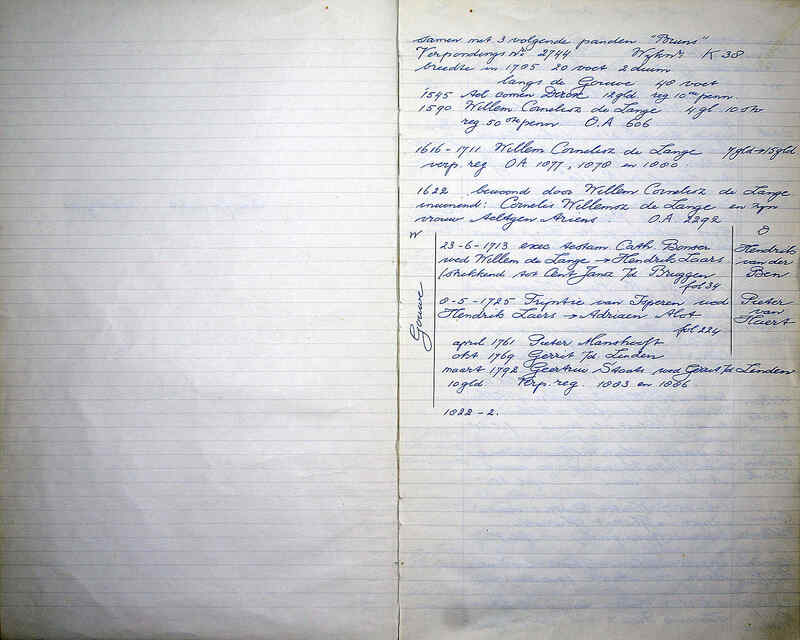 samen met 3 volgende panden "Bruns"
Verpondings Nr. 2744 Wijknr. K 38
breedte in 1785 20 voet 2 duim
langs de Gouwe 40 voet
1545 Ael oomen Dircx 12gld reg 10de penn
1590 Willem Cornelisz de Lange 4 gl. 10 sh
reg. 50ste penn O.A 606
1616-1711 Willem Cornelisz de Lange 7gld → 15gld
verp. reg OA 1877, 1878 en 1880
1622 bewoond door Willem Cornelisz de Lange
inwonend: Cornelis Willemsz de Lange en zijn
vrouw Aeltgen Ariens. O.A 2292
W
O
Gouwe
23-6-1713 exec testam Cath Bonser
wed Willem de Lange → Hendrik Laars
(strekkend tot Cent Jansz vd Bruggen
fol 34
Hendrik
van der
Ben
8-5-1725 Tryntie van Toperen wed
Hendrik Laers → Adriaen Alot
fol 224
Pieter
van
Huert
april 1761 Pieter Manshooft
okt 1769 Gerrit vd Linden
maart 1792 Geertrui Staats wed Gerrit vd Linden
10gld Verp. reg. 1883 en 1886
1822-2.